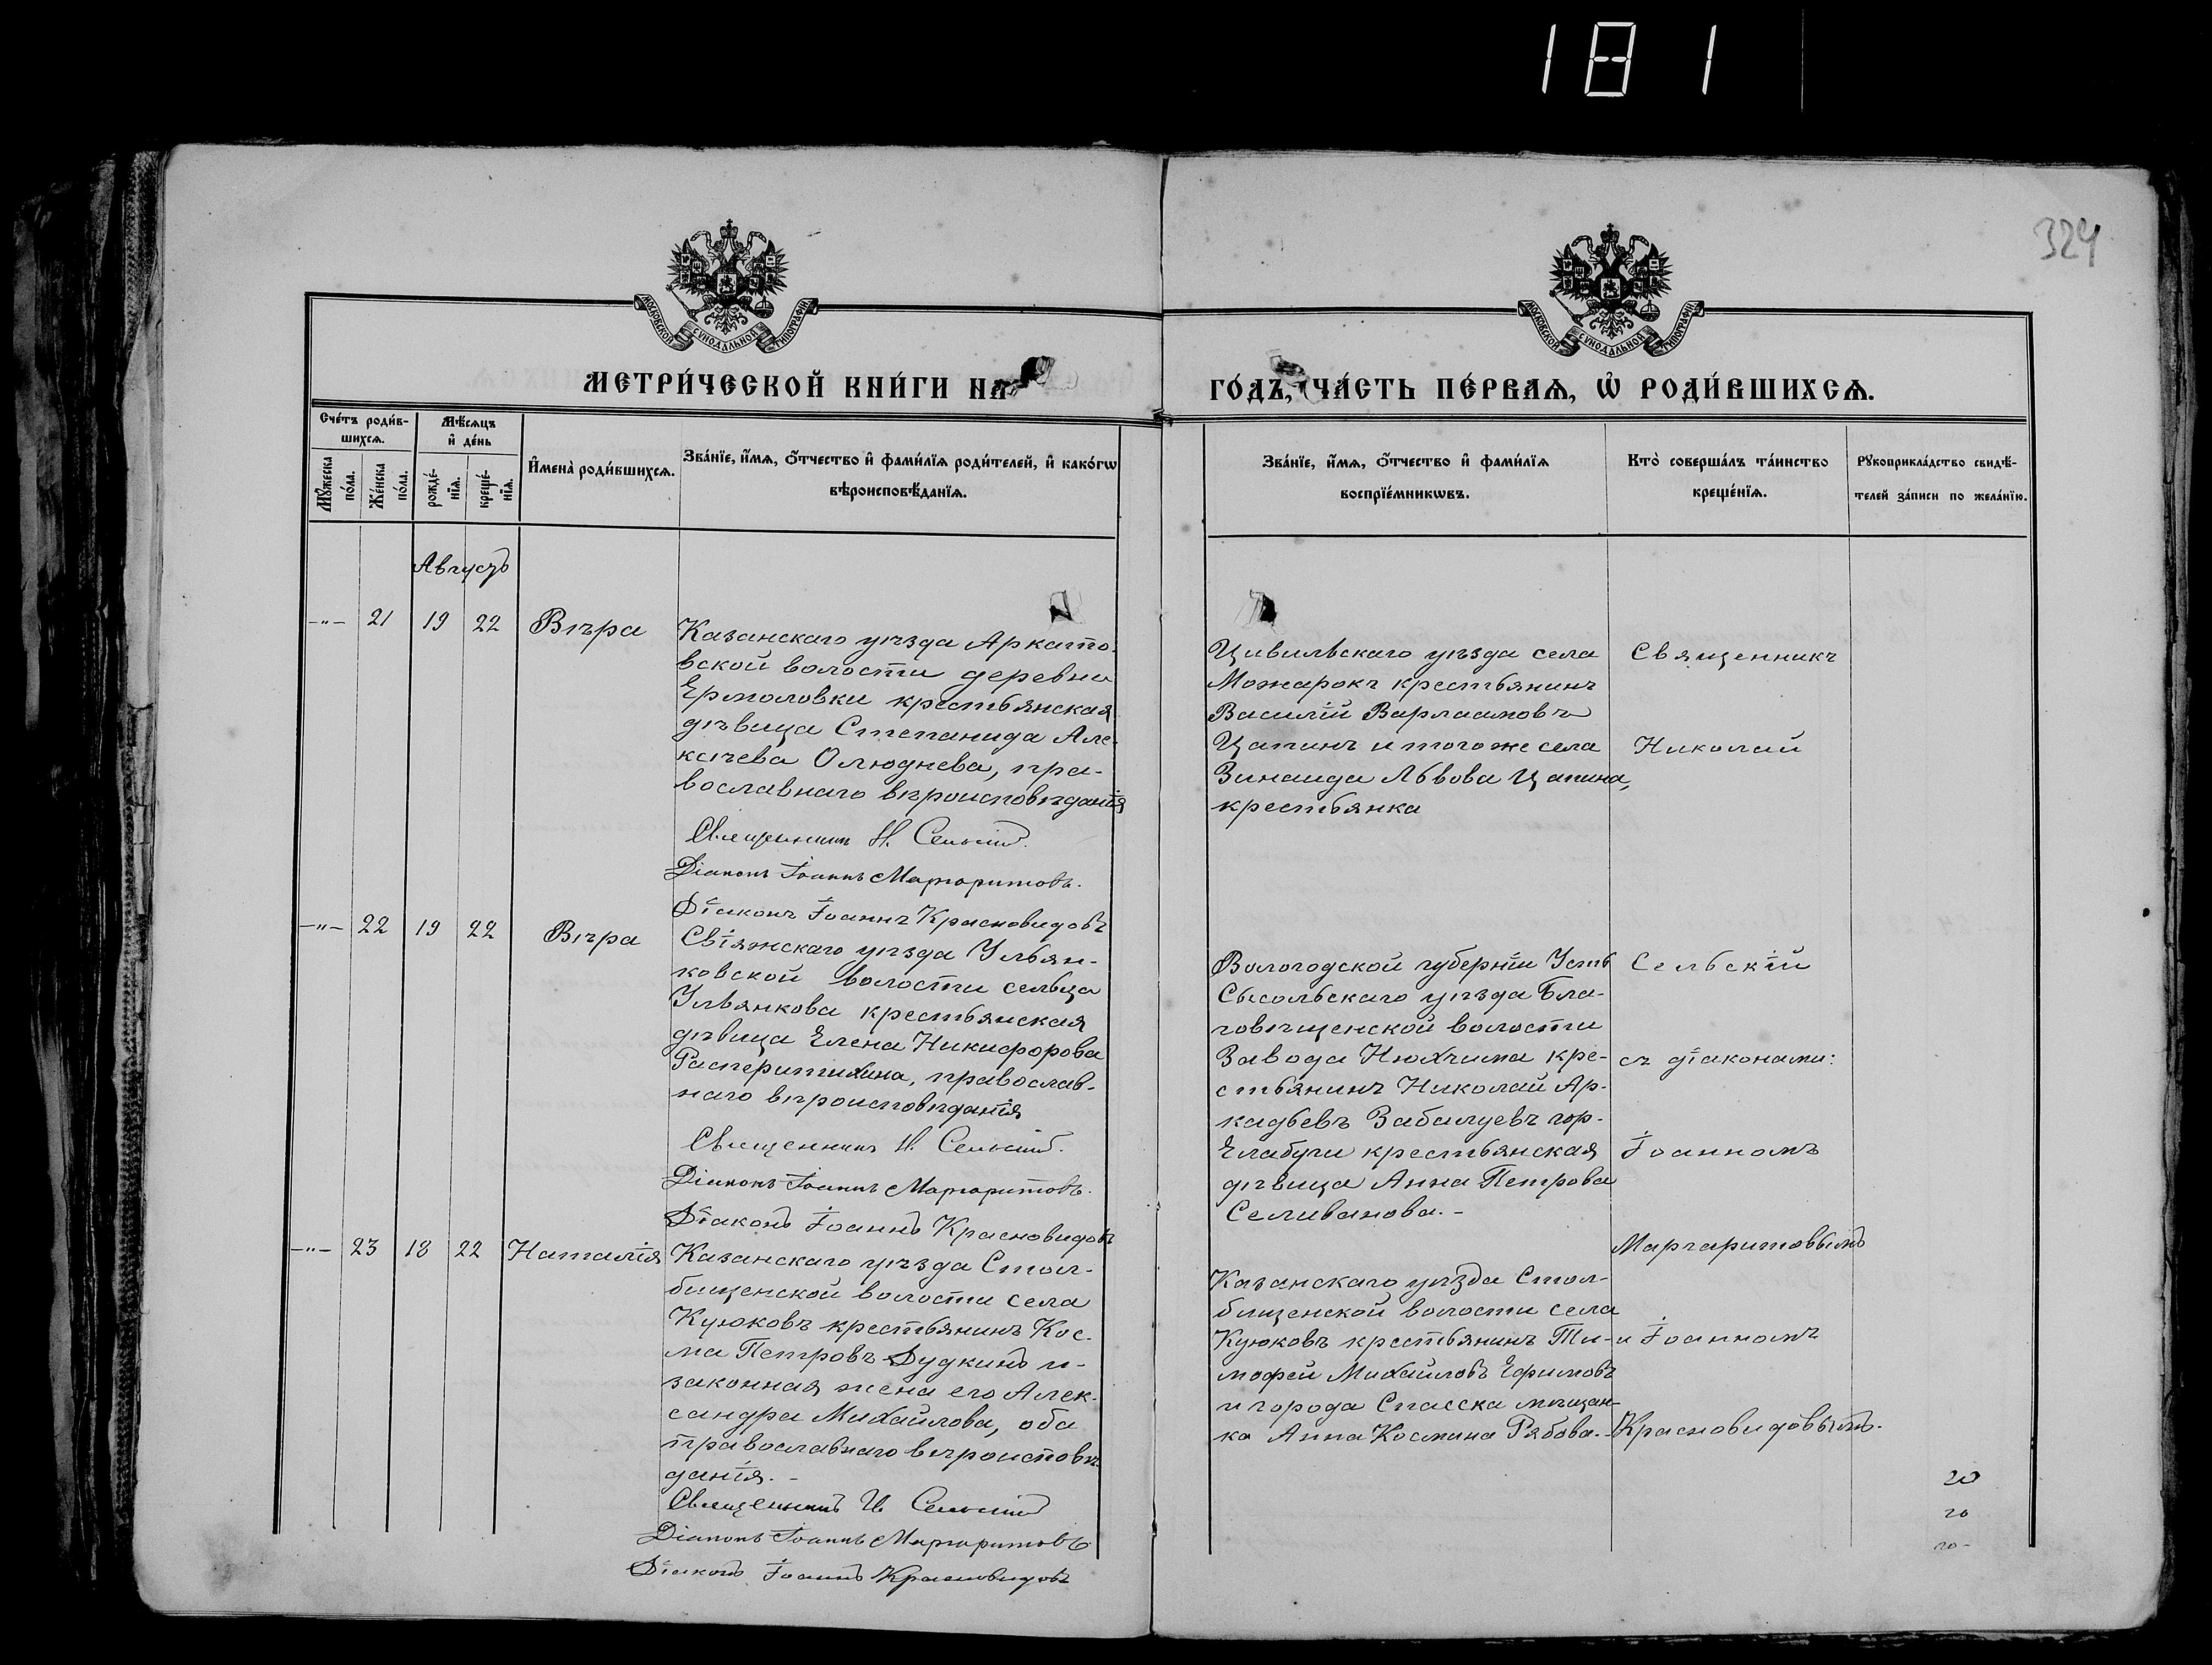 181
324
МОСКОВСКОЙ СѴНОДАЛЬНОЙ ТИПОГРАФІИ
МОСКОВСКОЙ СѴНОДАЛЬНОЙ ТИПОГРАФІИ
МЕТРИ́ЧЕСКОЙ КНИ́ГИ НА
ГО́ДЪ, ЧА́СТЬ ПЕ́РВАѦ, Ѽ РОДИ́ВШИХСѦ.
Сче́тъ роди́в-
шихсѧ.
Мꙋ́жеска по́ла.
Же́нска по́ла.
Мѣ́сѧцъ
и҆ де́нь
рожде́-
нїѧ.
креще́-
нїѧ.
И҆мена̀ роди́вшихсѧ.
Зва́нїе, и҆́мѧ, ѻ҆́тчество и҆ фами́лїѧ роди́телей, и҆ како́гѡ
вѣроисповѣ́данїѧ.
Зва́нїе, и҆́мѧ, ѻ҆́тчество и҆ фами́лїѧ
воспрїе́мникѡвъ.
Кто̀ соверша́лъ та́инство
креще́нїѧ.
Рꙋкоприкла́дство свидѣ́-
телей за́писи по жела́нїю.
Августъ
-"- 21 19 22 Вѣра
Казанскаго уѣзда Аркато-
вской волости деревни
Ермоловки крестьянская
дѣвица Степанида Але-
ксѣева Олюднева, пра-
вославнаго вѣроисповѣданія
Священникъ Н. Сельскій.
Діаконъ Іоаннъ Маргаритовъ.
Діаконъ Іоаннъ Красновидовъ
Цивильскаго уѣзда села
Можарокъ крестьянинъ
Василій Варлаамовъ
Цапинъ и того же села
Зинаида Львова Цапина,
крестьянка
Священникъ
Николай
-"- 22 19 22 Вѣра
Свіяжскаго уѣзда Ульян-
ковской волости сельца
Ульянкова крестьянская
дѣвица Елена Никифорова
Распертихина, православ-
наго вѣроисповѣданія
Священникъ Н. Сельскій.
Діаконъ Іоаннъ Маргаритовъ.
Діаконъ Іоаннъ Красновидовъ
Вологодской губерніи Усть
Сысольскаго уѣзда Бла-
говѣщенской волости
Завода Нюхчима кре-
стьянинъ Николай Ар-
кадьевъ Забалуевъ гор.
Елабуги крестьянская
дѣвица Анна Петрова
Селиванова.-
Сельскій
съ діаконами:
Іоанномъ
Маргаритовымъ
-"- 23 18 22 Наталія
Казанскаго уѣзда Стол-
бищенской волости села
Куюковъ крестьянинъ Кос-
ма Петровъ Дудкинъ и-
законная жена его Алек-
сандра Михайлова, оба
православнаго вѣроисповѣ-
данія.-
Священникъ Н. Сельскій
Діаконъ Іоаннъ Маргаритовъ.
Діаконъ Іоаннъ Красновидовъ
Казанскаго уѣзда Стол-
бищенской волости села
Куюковъ крестьянинъ Ти-
мофей Михайловъ Ефимовъ
и города Спасска мѣщан-
ка Анна Космина Рябова.-
и Іоанномъ
Красновидовымъ.
20
20
20-